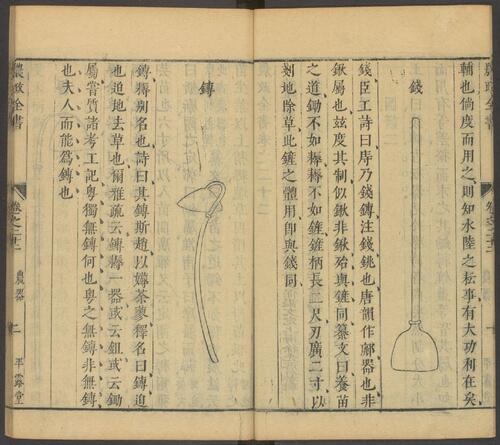 輔也倘度而用之則知水陸之耘事有大功利在矣
錢
錢臣工詩曰庤乃錢鎛注錢銚也唐韻作器也非
鍬屬也玆度其制似鍬非鍬殆與鏟同纂文曰養苗
之道鋤不如耨耨不如鏟鏟柄長二尺刃廣二寸以
剗地除草此鏟之體用即與錢同
鎛
鎛耨別名也詩曰其鎛斯趙以薅荼蓼釋名曰鎛迫
也迫地去草也爾雅疏云鎛耨一器或云鉏或云鋤
屬嘗質諸考工記粤獨無鎛何也粤之無鎛非無鎛
也夫人而能爲鎛也
農政全書 卷之二十二 農器 二 平露堂